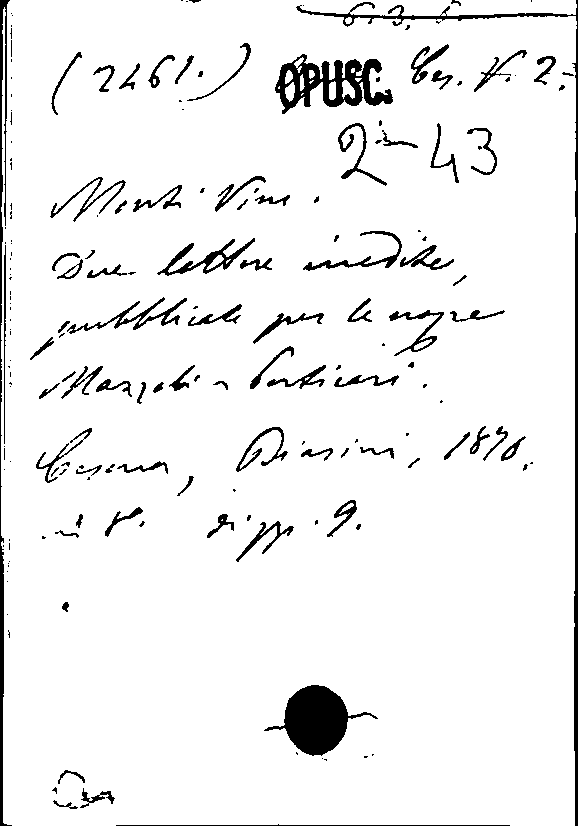 6. 3. 6.
(2461.) OPUSC. Ces. V. 2.
2 43
Monti Vinc.
Due lettere inedite,
pubblicate per le nozze
Manzoli - Perticari.
Cesena, Biasini, 1870.
in 8°. di pp. 9.